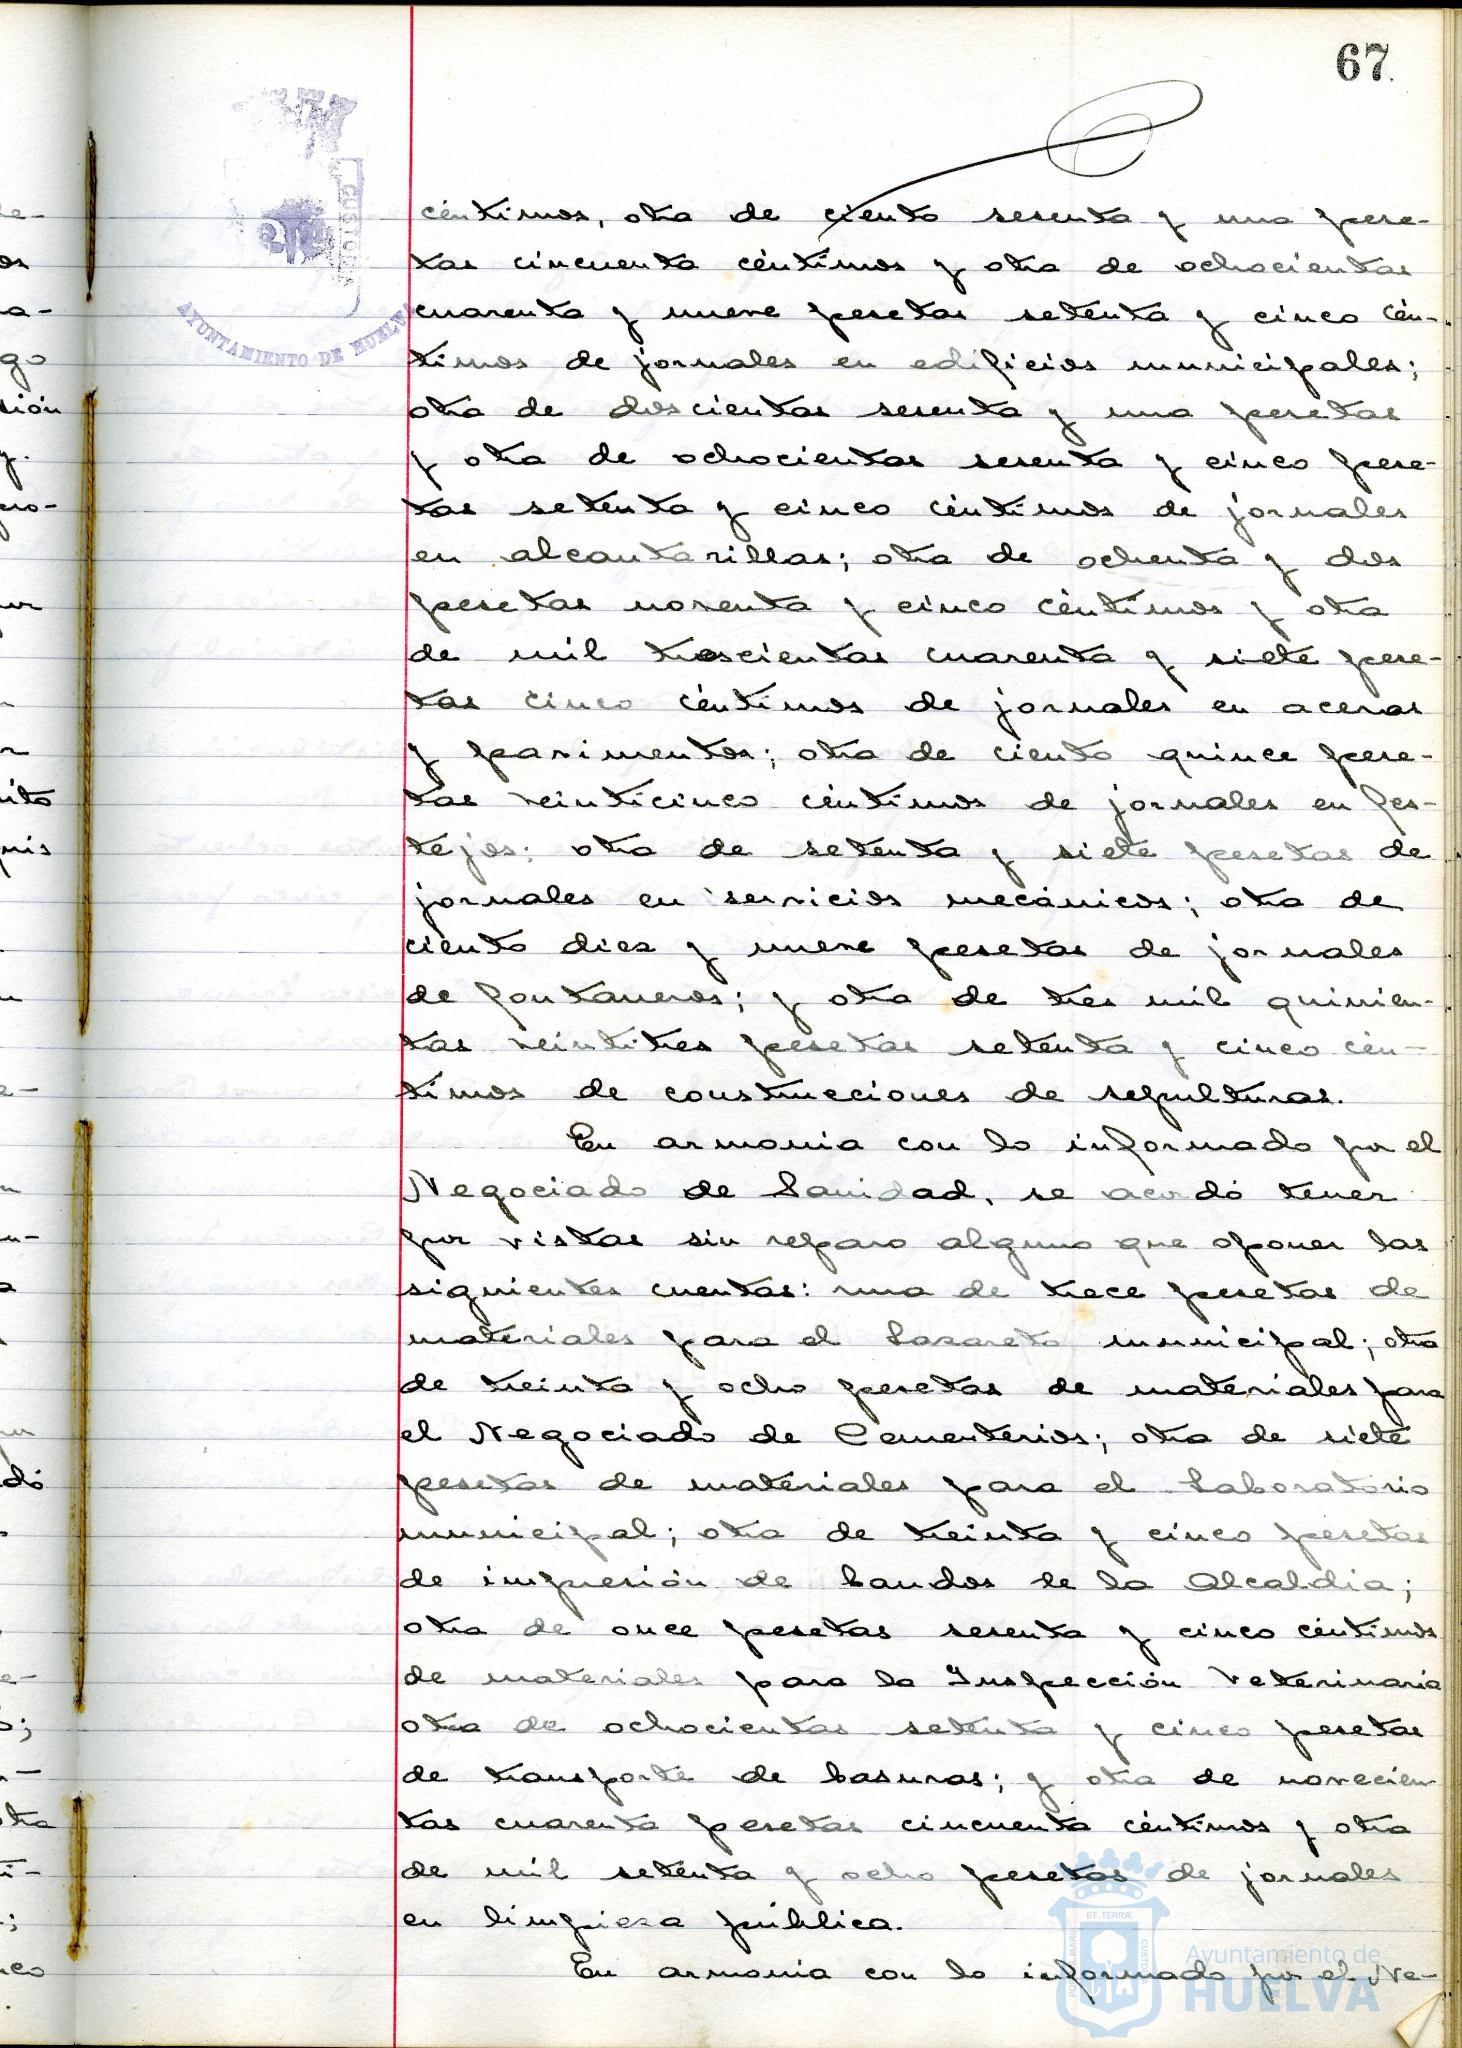 67
céntimos, otra de ciento sesenta y una pese-
tas cincuenta céntimos y otra de ochocientas
cuarenta y nueve pesetas setenta y cinco cén-
timos de jornales en edificios municipales;
otra de doscientas sesenta y una pesetas
y otra de ochocientas sesenta y cinco pese-
tas setenta y cinco céntimos de jornales
en alcantarillas; otra de ochenta y dos
pesetas noventa y cinco céntimos y otra
de mil trescientas cuarenta y siete pese-
tas cinco céntimos de jornales en aceras
y pavimentos; otra de ciento quince pese-
tas veinticinco céntimos de jornales en fes-
tejos; otra de setenta y siete pesetas de
jornales en servicios mecánicos; otra de
ciento diez y nueve pesetas de jornales
de fontaneros; y otra de tres mil quinien-
tas veintitres pesetas setenta y cinco cén-
timos de construcciones de sepulturas.
En armonia con lo informado por el
Negociado de Sanidad, se acordó tener
por vistas sin reparo alguno que oponer las
siguientes cuentas: una de trece pesetas de
materiales para el Lazareto municipal; otra
de treinta y ocho pesetas de materiales para
el Negociado de Cementerios; otra de siete
pesetas de materiales para el Laboratorio
municipal; otra de treinta y cinco pesetas
de impresión de bandos de la Alcaldia;
otra de once pesetas sesenta y cinco céntimos
de materiales para la Inspección Veterinaria
otra de ochocientas setenta y cinco pesetas
de transporte de basuras; y otra de novecien-
tas cuarenta pesetas cincuenta céntimos y otra
de mil setenta y ocho pesetas de jornales
en limpieza pública.
En armonia con lo informado por el Ne-
AYUNTAMIENTO DE HUELVA
CUSTOD
ET TERRÆ
PORTUS MARIS
CUSTODIA
Ayuntamiento de
HUELVA